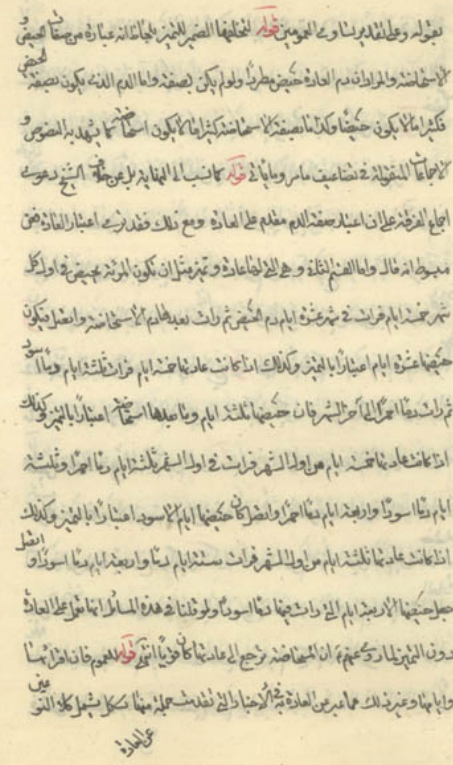 بقوله وعلى التقدير يساوى العمومين قوله لتخلفها الضمير للتميز بلحاظ انه عبارة عن صفات الحيض و
الاستحاضة والمراد ان دم العادة حيض مطردا ولو لم يكن بصفة الحيض واما الدم الذى يكون بصفة
فكثيرا ما لا يكون حيضا وكذا ما بصفة الاستحاضة كثيرا ما لا يكون استحاضة كما يشهد به النصوص و
الاجماعات المنقولة في تضاعيف ما مر وما ياتى قوله كما نسب الى النهاية بل عن خلاف الشيخ دعوى
اجماع الفرقة على ان اعتبار صفة الدم مقدم على العادة ومع ذلك فقد نرى اعتبار العادة فعن
مبسوط انه قال واما القسم الثالثة وهى التى لها عادة وتميز مثل ان تكون المرئة تحيض في اول كل
شهر خمسة ايام فرات في شهر عشرة ايام دم الحيض ثم رات بعدها دم الاستحاضة واتصل فيكون
حيضها عشرة ايام اعتبارا بالتميز وكذلك اذا كانت عادتها خمسة ايام فرات ثلثة ايام دما اسود
ثم رات دما احمر الى آخر الشهر فان حيضها ثلثة ايام وما بعدها استحاضة اعتبارا بالتميز وكذلك
اذا كانت عادتها خمسة ايام من اول الشهر فرات في اول الشهر ثلثة ايام دما احمرا وثلثة
ايام دما اسودا واربعة ايام دما احمرا واتصل كان حيضها ايام الاسود اعتبارا بالتميز وكذلك
اذا كانت عادتها ثلثة ايام من اول الشهر فرات ستة ايام دما واربعة ايام دما اسودا و اتصل
جعل حيضها الاربعة ايام التى رات فيها دما اسودا ولو قلنا في هذه المسائل انها تعمل على العادة
دون التميز لما روى عنهم ان المستحاضة ترجع الى عادتها كان قويا انتهى قوله للعموم فان اقرائها
وايامها وغير ذلك مما عبر عن العادة به في الاخبار التى تقدمت جملة منها تشمل كلا النوعين
عن العادة